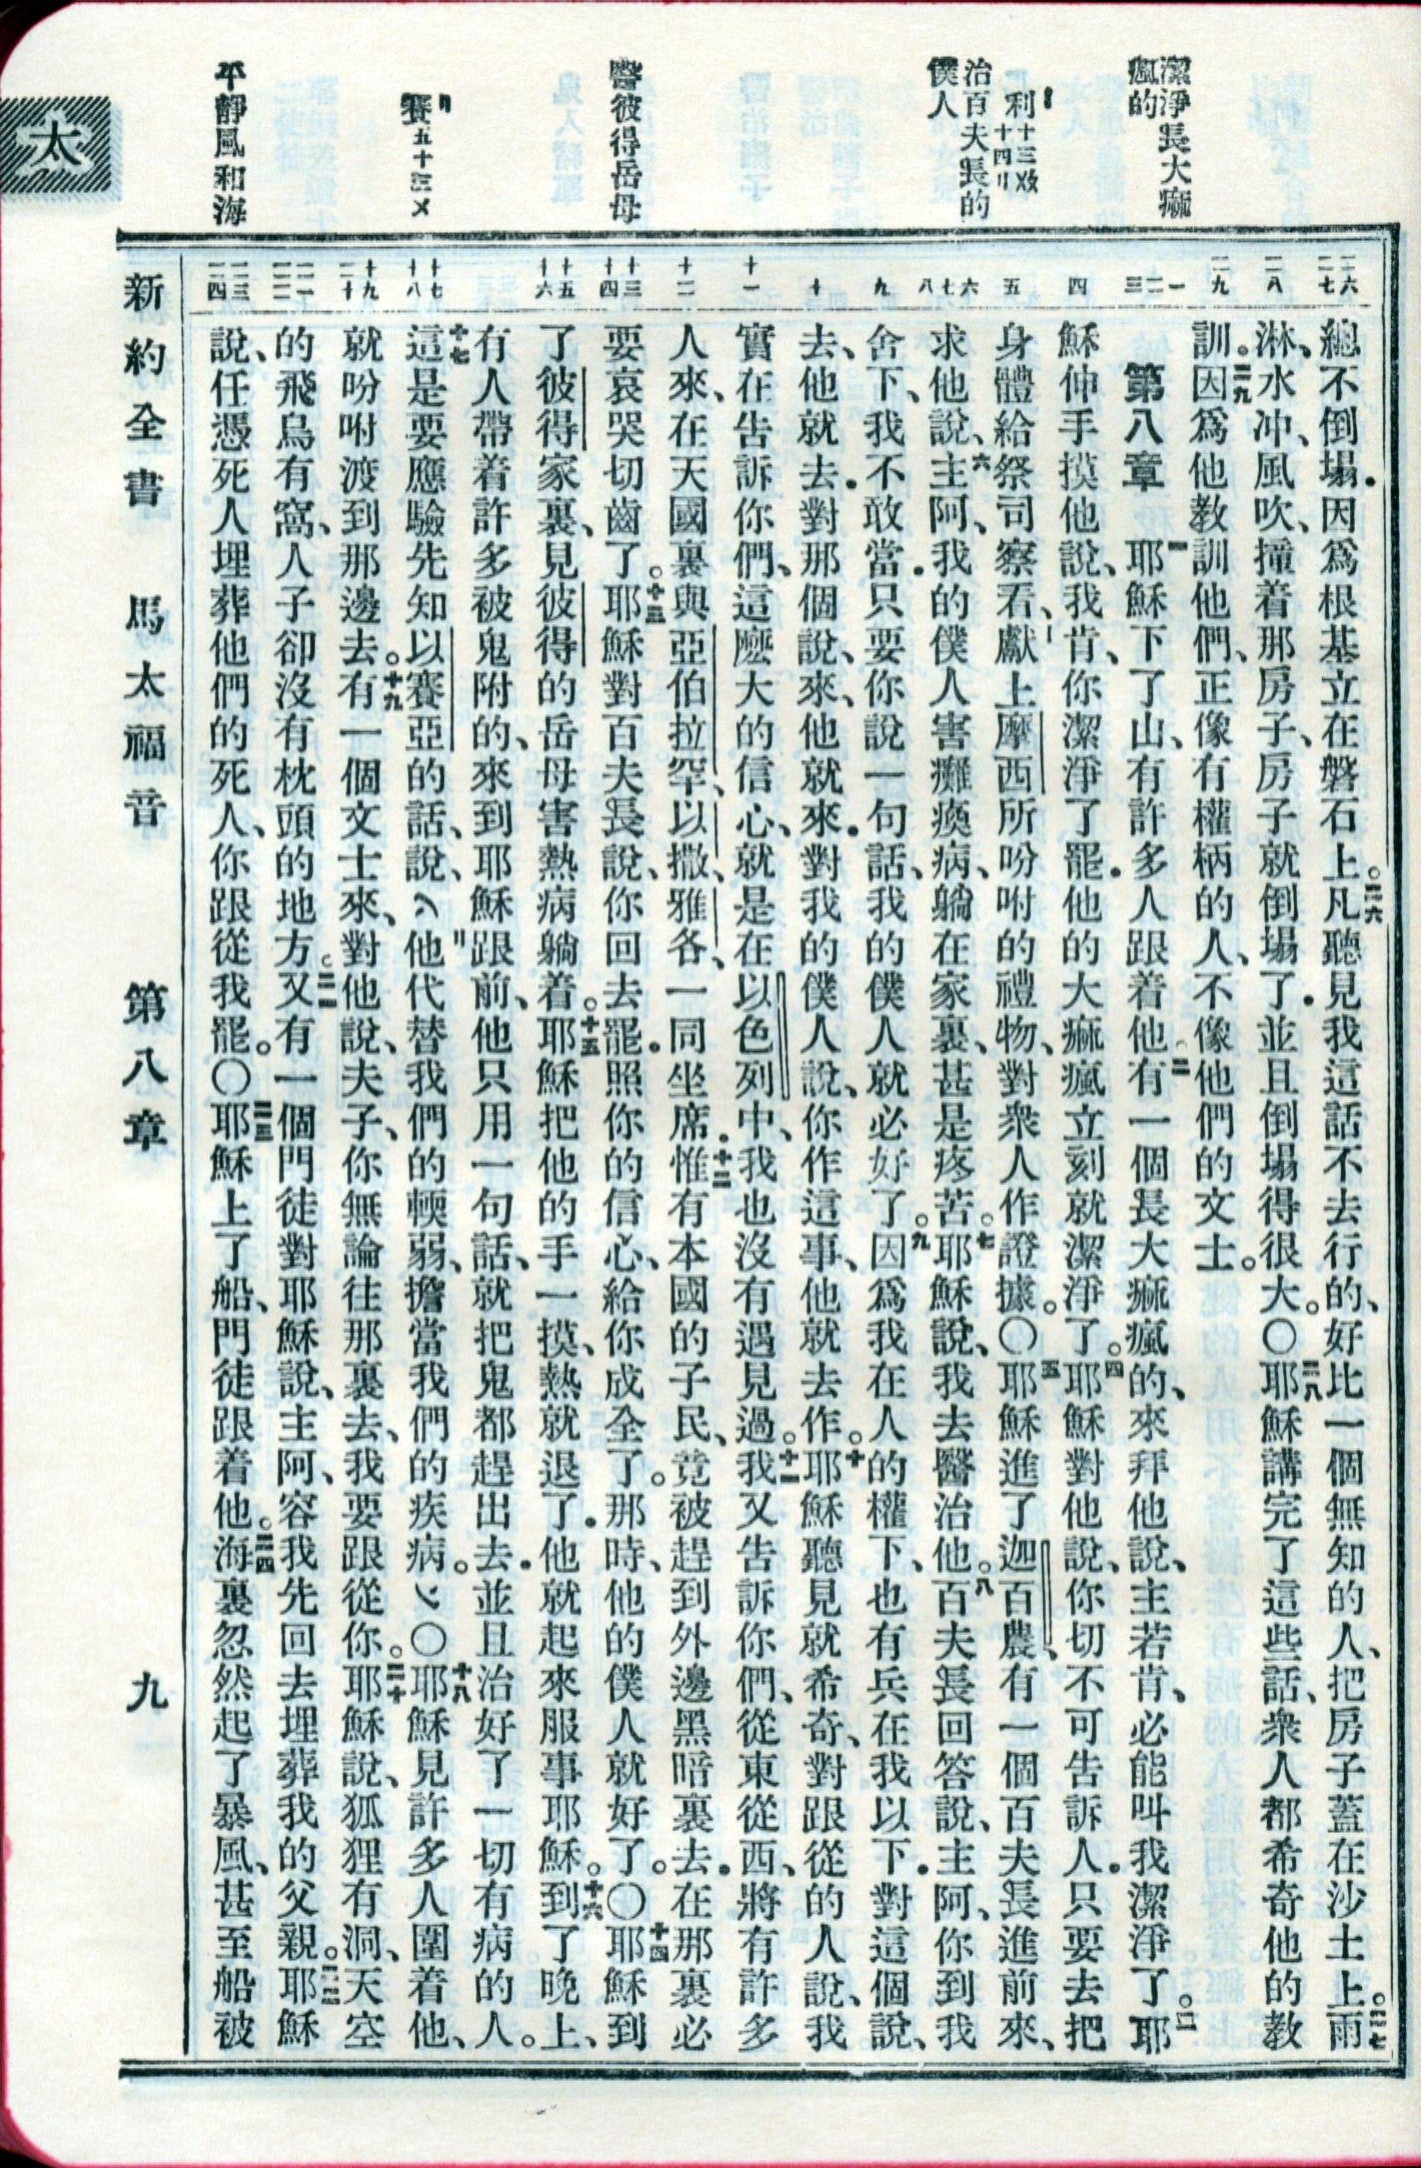 潔淨長大痲
瘋的
利十三〤
十四〢
治百夫長的
僕人
醫彼得岳母
賽五十三〤
平靜風和海
太
二六 二七
二八
二九
一 二 三
四
五
六 七 八
九
十
十一
十二
十三 十四
十五 十六
十七 十八
十九 二十
二一 二二
二三 二四
總不倒塲．因爲根基立在磐石上。二六凡聽見我這話不去行的、好比一個無知的人、把房子蓋在沙土上。二七雨
淋、水冲、風吹、撞着那房子、房子就倒塲了．並且倒塲得很大。〇二八耶穌講完了這些話、衆人都希奇他的教
訓。二九因爲他教訓他們、正像有權柄的人、不像他們的文士。
第八章 一耶穌下了山、有許多人跟着他。二有一個長大痲瘋的、來拜他說、主若肯、必能叫我潔淨了。三耶
穌伸手摸他說、我肯、你潔淨了罷．他的大痲瘋立刻就潔淨了。四耶穌對他說、你切不可告訴人．只要去把
身體給祭司察看、獻上摩西所吩咐的禮物、對衆人作證據。〇五耶穌進了迦百農、有一個百夫長進前來、
求他說、六主阿、我的僕人害癱瘓病、躺在家裏、甚是疼苦。七耶穌說、我去醫治他。八百夫長回答說、主阿、你到我
舍下、我不敢當．只要你說一句話、我的僕人就必好了。九因爲我在人的權下、也有兵在我以下．對這個說、
去、他就去．對那個說、來、他就來．對我的僕人說、你作這事、他就去作。十耶穌聽見就希奇、對跟從的人說、我
實在告訴你們、這麼大的信心、就是在以色列中、我也沒有遇見過。十一我又告訴你們、從東從西、將有許多
人來、在天國裏與亞伯拉罕、以撒、雅各、一同坐席．十二惟有本國的子民、竟被趕到外邊黑暗裏去．在那裏必
要哀哭切齒了。十三耶穌對百夫長說、你回去罷．照你的信心、給你成全了。那時、他的僕人就好了。〇十四耶穌到
了彼得家裏、見彼得的岳母害熱病躺着。十五耶穌把他的手一摸、熱就退了．他就起來服事耶穌。十六到了晚上、
有人帶着許多被鬼附的、來到耶穌跟前、他只用一句話、就把鬼都趕出去．並且治好了一切有病的人。
十七這是要應驗先知以賽亞的話、說、他代替我們的輭弱、擔當我們的疾病。〇十八耶穌見許多人圍着他、
就吩咐渡到那邊去。十九有一個文士來、對他說、夫子、你無論往那裏去、我要跟從你。二十耶穌說、狐狸有洞、天空
的飛鳥有窩、人子卻沒有枕頭的地方。二一又有一個門徒對耶穌說、主阿、容我先回去埋葬我的父親。二二耶穌
說、任憑死人埋葬他們的死人、你跟從我罷。〇二三耶穌上了船、門徒跟着他。二四海裏忽然起了暴風、甚至船被
新約全書 馬太福音 第八章 九